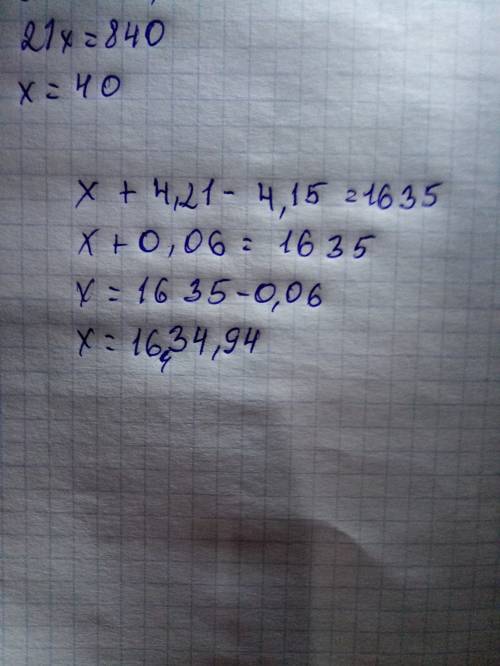 21x=840
x=40
x + 4,21 - 4,15 = 1635
x + 0,06 = 1635
x = 1635 - 0,06
x = 16,34,94